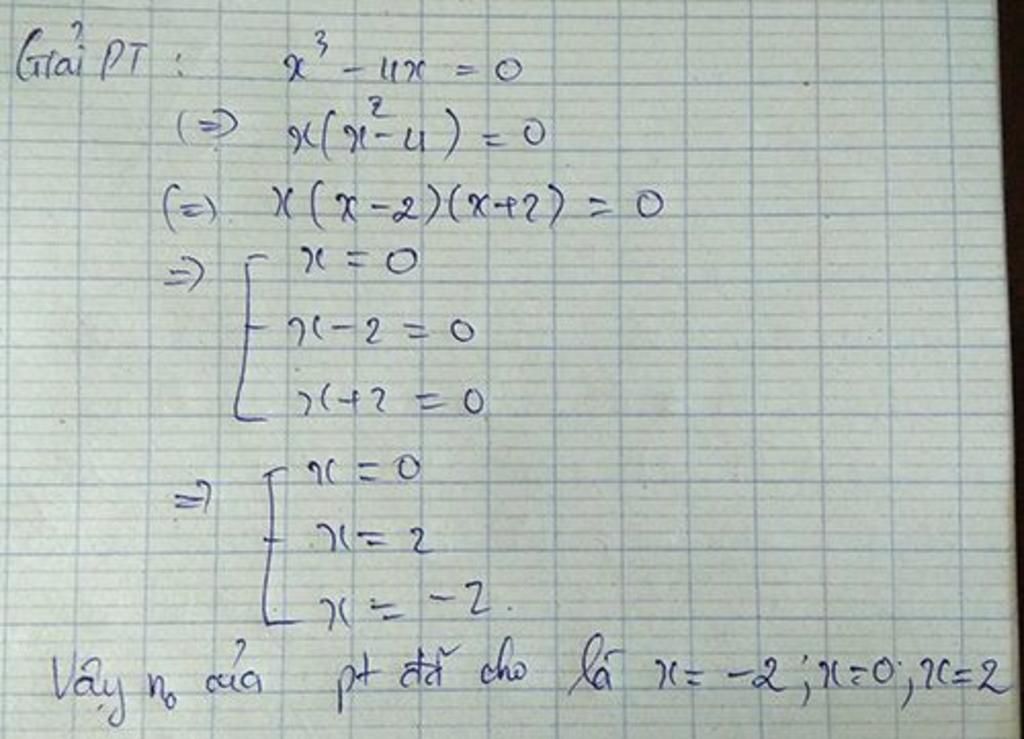 Giải PT : x³ - 4x = 0
(=>) x(x² - 4) = 0
(=) x(x-2)(x+2) = 0
=> [ x = 0
x - 2 = 0
x + 2 = 0
=> [ x = 0
x = 2
x = -2.
Vậy n₀ của pt đã cho là x = -2 ; x = 0 ; x = 2